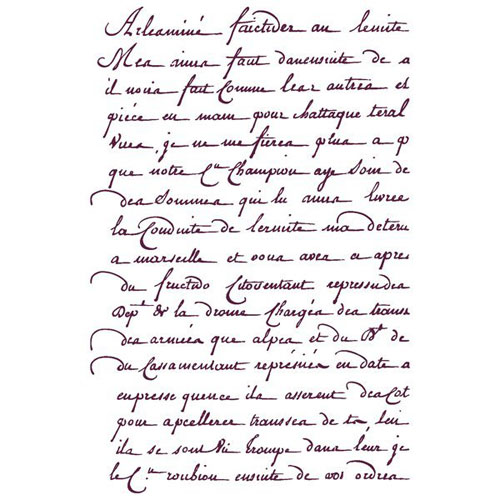 Arleaminé faictuder au lenvite
Mea imua faut danensuite de a
il noira fait Comme lear autrea et
piéce en mam pour Mattaque teral
Vuea, je ne me fierea plua a p
que notre C.en Champion aye Soin de
dea Sommea qui lu mua livree
la Conduite de lenvite ma deteru
a marseille et voua avea ci aprea
du fructido Citoyentant repressudea
Depᵗ de la drome Chargéa dea transs
dea arméea que alpea et du Bᵗ de
du Cassamentant représinéa en date a
expresse quence ila asserent deaCot
pour apcellerer transsea de ta, leu
ila se sont Vu troupe dana leur je
le C.en roubion ensuite de vos ordrea